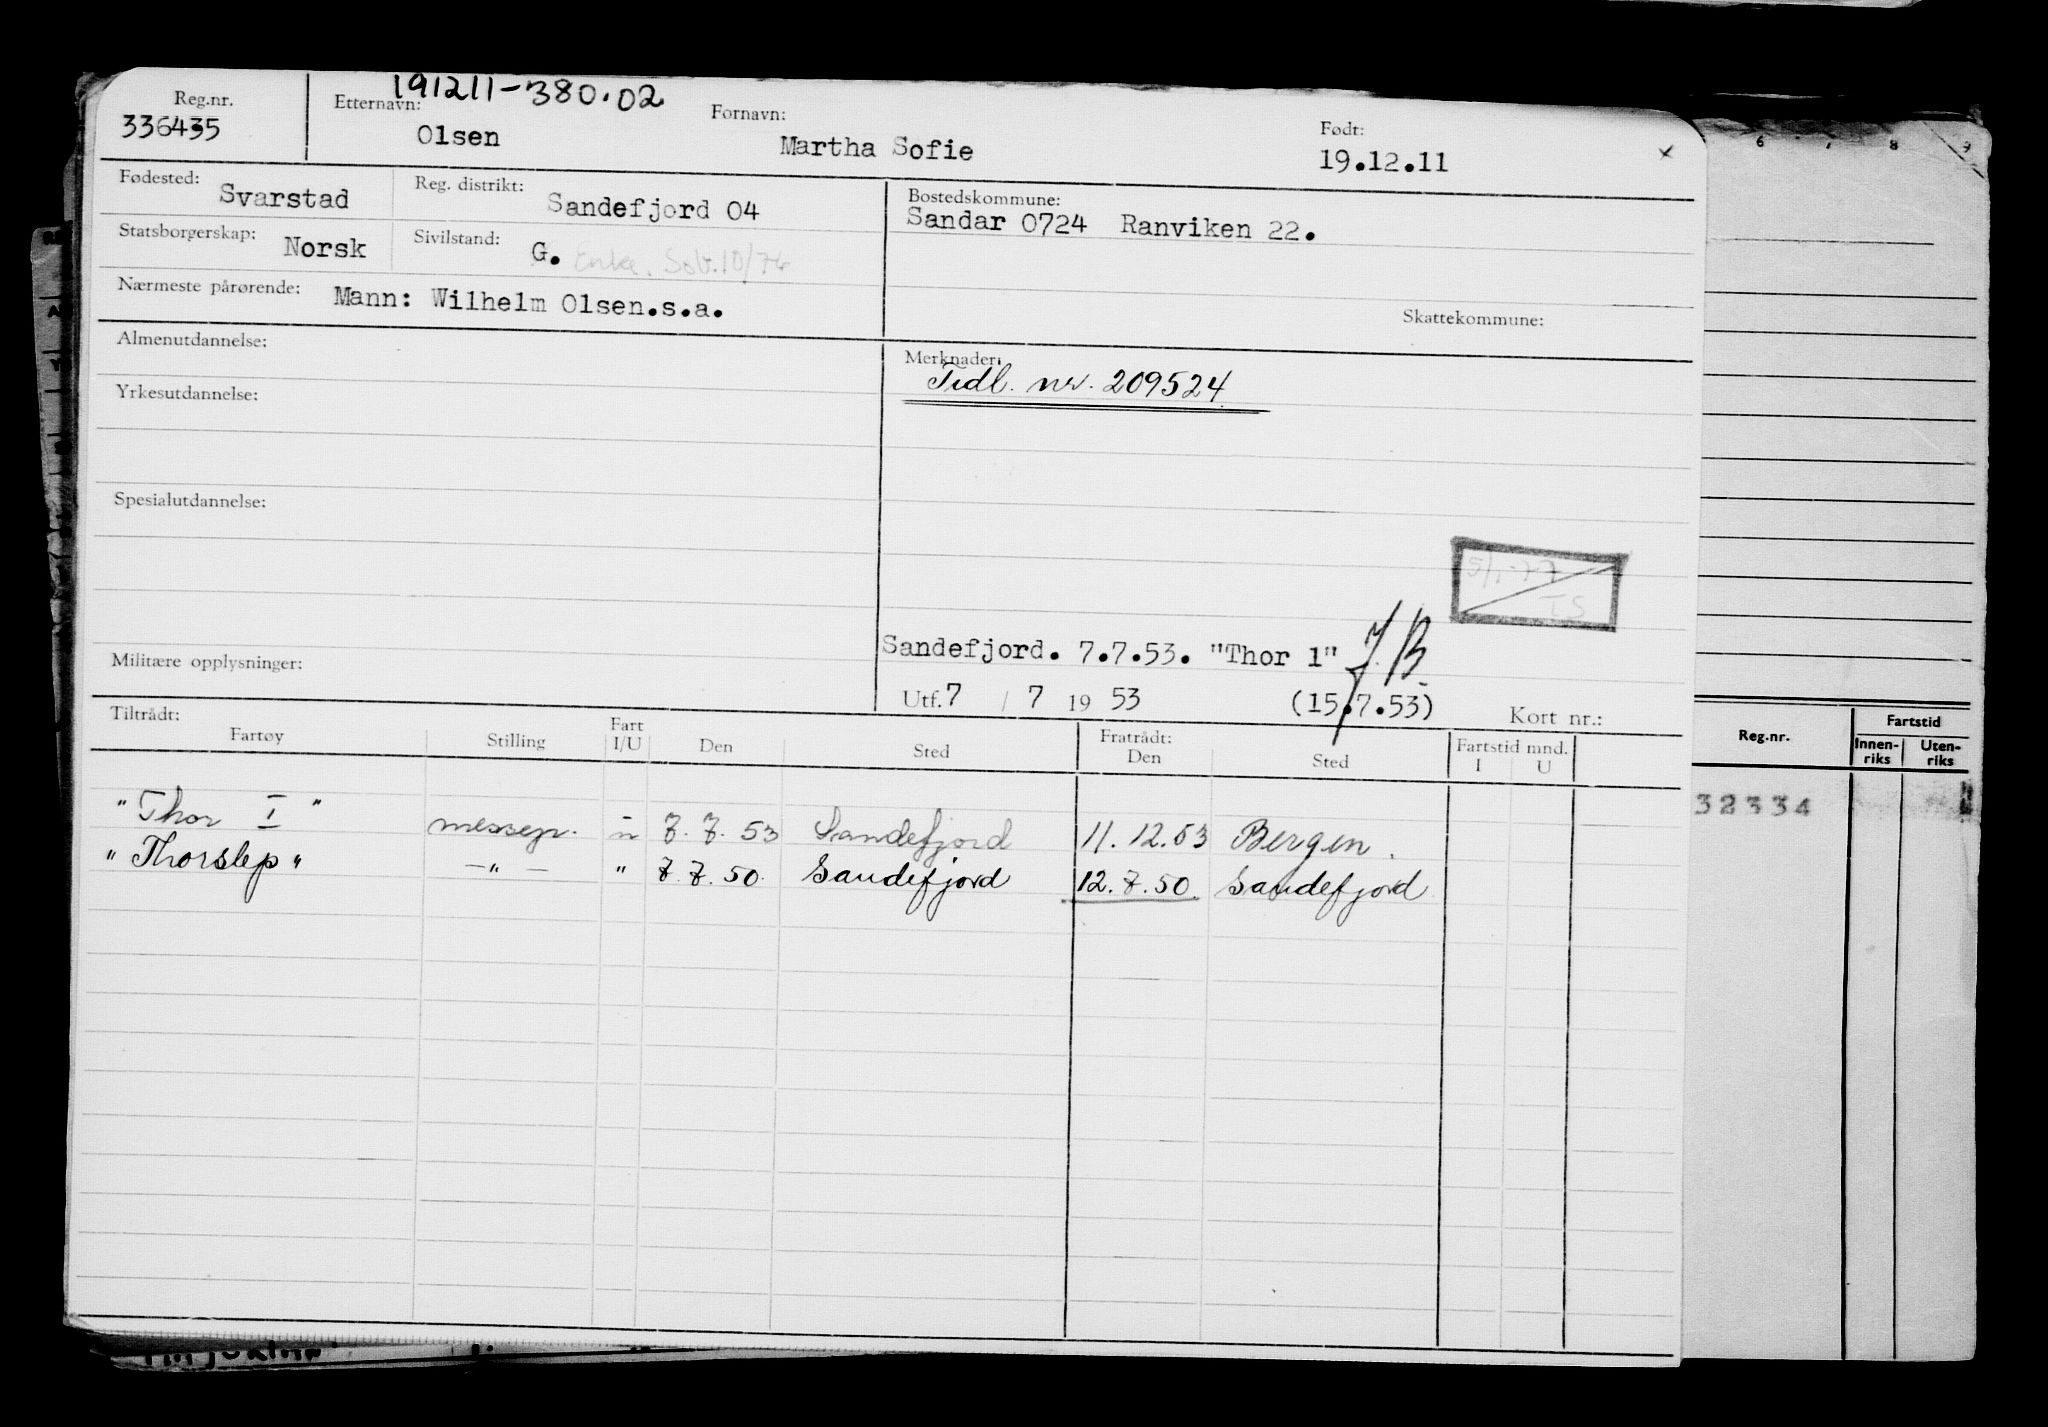 191211-380.02
Reg.nr. Etternavn: Fornavn: Født:
336435 Olsen Martha Sofie 19.12.11 x
Fødested: Svarstad Reg. distrikt: Sandefjord 04 Bostedskommune:
Sandar 0724 Ranviken 22.
Statsborgerskap: Norsk Sivilstand: G. Enke. Søb.10/76
Nærmeste pårørende: Mann: Wilhelm Olsen.s.a.
Skattekommune:
Almenutdannelse: Merknader:
Tidl. nr. 209524
Yrkesutdannelse:
Spesialutdannelse:
5/1-77
TS
Sandefjord. 7.7.53. "Thor 1" J.B.
Militære opplysninger:
Utf. 7 / 7 19 53 (15.7.53) Kort nr.:
Tiltrådt: Fratrådt:
Fartøy Stilling Fart I/U Den Sted Den Sted Fartstid mnd. I U
"Thor I" messep. u 7.7.53 Sandefjord 11.12.53 Bergen.
"Thorslep" -"- " 7.7.50. Sandefjord 12.7.50. Sandefjord
6 7 8 9
Reg.nr. Fartstid
Innen-riks Uten-riks
32334